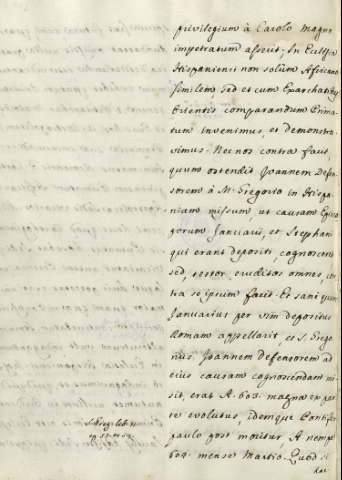 privilegium à Carolo magno
impetratum asserit; In Eccl͂ia
Hispaniensi non solùm Africano
similem sed et cum Exarchatibus
Orientis comparandum Prima-
tum invenimus, et demonstra-
vimus. Nec nos contra facit,
quum ostendit Joannem Defen-
sorem à M. Gregorio in Hispa-
niam missum, ut causam Epis-
coporum Januarii, et Stephani
qui erant depositi, cognosceret
sed, testor eruditos omnes, con-
tra se ipsum facit. Et sanè quum
Januarius per vim depositus
Romam appellarit, et S. Grego-
rius Joannem defensorem ad
eius causam cognoscendam mi-
sit, erat A. 603. magna ex par-
te evolutus, idemque Pontifex
paulo post moritur, A. nempe
604. mense Martio. Quod si
S. Greg. lib. 11.